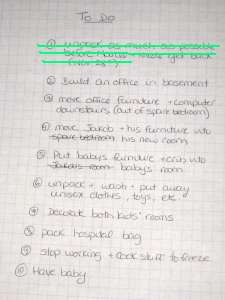 To Do
① unpack as much as possible
before Mom + Dad get back
(Nov 28th)
② Build an office in basement
③ move office furniture + computer
downstairs (out of spare bedroom)
④ move Jakob + his furniture into
spare bedroom his new room
⑤ Put baby's furniture + crib into
Jakob's room baby's room
⑥ unpack + wash + put away
unisex clothes, toys, etc.
⑦ Decorate both kids' rooms
⑧ pack hospital bag
⑨ stop working + cook stuff to freeze
⑩ Have baby